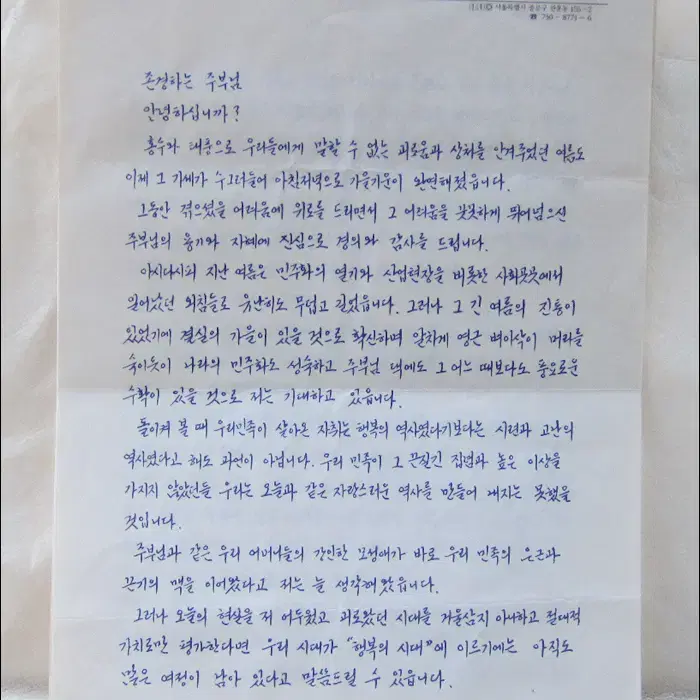 서울특별시 종로구 관훈동 155-2
☎ 730-8771~6
존경하는 주부님
안녕하십니까?
홍수와 태풍으로 우리들에게 말할 수 없는 괴로움과 상처를 안겨주었던 여름도
이제 그 기세가 수그러들어 아침저녁으로 가을기운이 완연해졌읍니다.
그동안 겪으셨을 어려움에 위로를 드리면서 그 어려움을 꿋꿋하게 뛰어넘으신
주부님의 용기와 지혜에 진심으로 경의와 감사를 드립니다.
아시다시피 지난 여름은 민주화의 열기와 산업현장을 비롯한 사회곳곳에서
일어났던 외침들로 유난히도 무덥고 길었읍니다. 그러나 그 긴 여름의 진통이
있었기에 결실의 가을이 있을 것으로 확신하며 알차게 영근 벼이삭이 머리를
숙이듯이 나라의 민주화도 성숙하고 주부님 댁에도 그 어느 때보다도 풍요로운
수확이 있을 것으로 저는 기대하고 있읍니다.
돌이켜 볼 때 우리민족이 살아온 자취는 행복의 역사였다기보다는 시련과 고난의
역사였다고 해도 과언이 아닙니다. 우리 민족이 그 끈질긴 집념과 높은 이상을
가지지 않았던들 우리는 오늘과 같은 자랑스러운 역사를 만들어 내지는 못했을
것입니다.
주부님과 같은 우리 어머니들의 강인한 모성애가 바로 우리 민족의 은근과
끈기의 맥을 이어왔다고 저는 늘 생각해왔읍니다.
그러나 오늘의 현실을 저 어두웠고 괴로왔던 시대를 거울삼지 아니하고 절대적
가치로만 평가한다면 우리 시대가 "행복의 시대"에 이르기에는 아직도
많은 여정이 남아 있다고 말씀드릴 수 있읍니다.